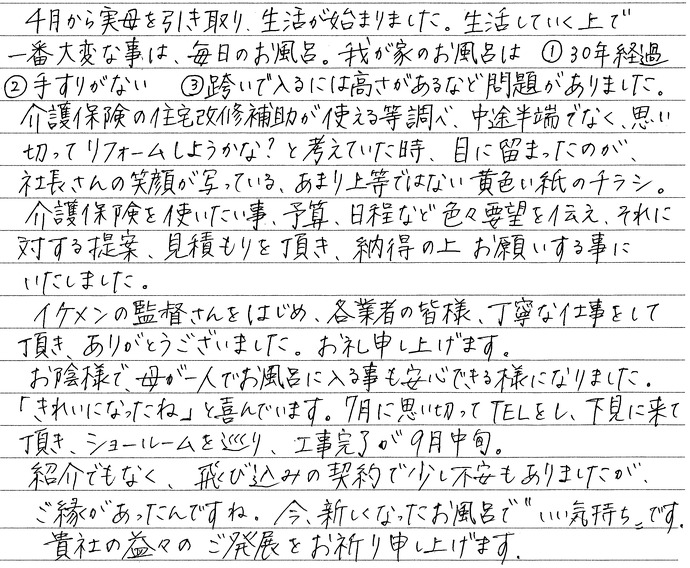 4月から実母を引き取り、生活が始まりました。生活していく上で
一番大変な事は、毎日のお風呂。我が家のお風呂は ①30年経過
②手すりがない ③跨いで入るには高さがあるなど問題がありました。
介護保険の住宅改修補助が使える等調べ、中途半端でなく、思い
切ってリフォームしようかな？と考えていた時、目に留まったのが、
社長さんの笑顔が写っている、あまり上等ではない黄色い紙のチラシ。
介護保険を使いたい事、予算、日程など色々要望を伝え、それに
対する提案、見積もりを頂き、納得の上お願いする事に
いたしました。
イケメンの監督さんをはじめ、各業者の皆様、丁寧な仕事をして
頂き、ありがとうございました。お礼申し上げます。
お陰様で、母が一人でお風呂に入る事も安心できる様になりました。
「きれいになったね」と喜んでいます。7月に思い切ってTELをし、下見に来て
頂き、ショールームを巡り、工事完了が9月中旬。
紹介でもなく、飛び込みの契約で少し不安もありましたが、
ご縁があったんですね。今、新しくなったお風呂で〝いい気持ち〟です。
貴社の益々のご発展をお祈り申し上げます。